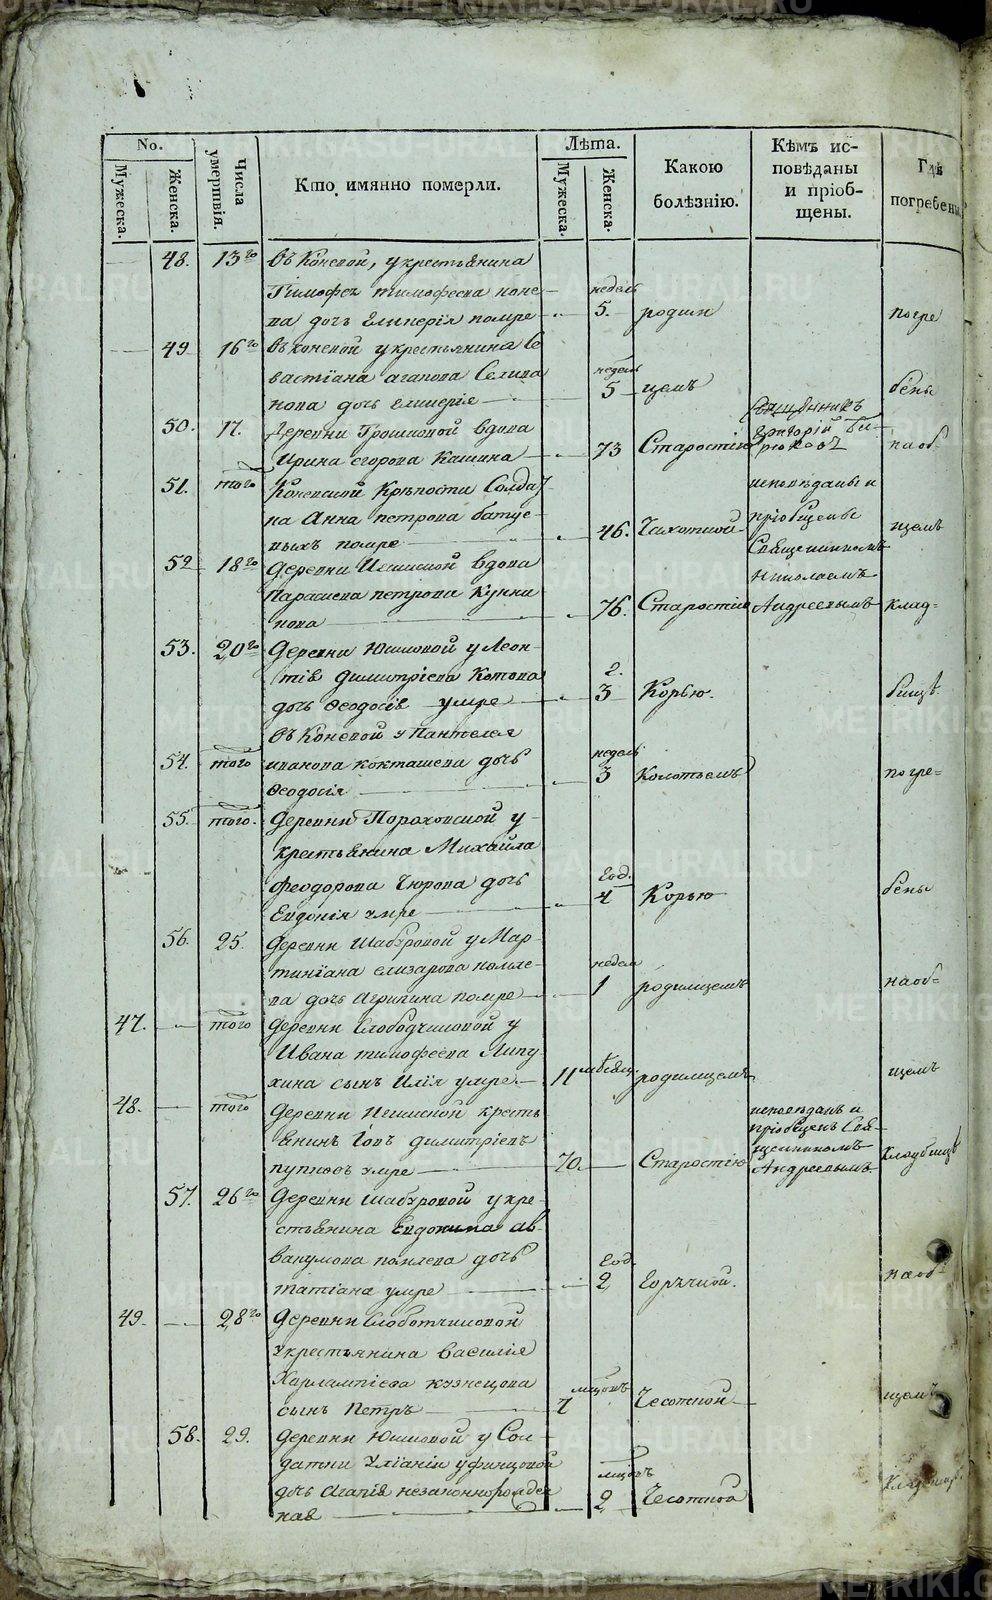 No.
Мужеска.
Женска.
Числа умертвія.
Кто имянно померли.
Лѣта.
Мужеска.
Женска.
Какою болѣзнію.
Кѣмъ ис-
повѣданы
и пріоб-
щены.
Гдѣ
погребены
48. 13го въ Коневой, у крестьянина
Тімофея тимофеева коне-
ва дочь Гликерія помре недель 5. родим погре
49 16го въ коневой у крестьянина Се
вастіана агапова Селива
нова дочь гликерія недель 5 цемъ бены
50. 17. Деревни Грошиовой вдова
Ирина егорова Кашина 73 Старостію Священникъ
Григорій Би-
рюковъ на об
51. того Коневской Крѣпости Солда
ка Анна петрова
выхъ помре 46. Чахоткой исповѣданы и
пріобщены щемъ
52 18го Деревни Игишской вдова
Параскева петрова
нова 76. Старостію Священникомъ
Николаемъ
Андреевымъ клад-
53. 20го Деревни Юшковой у Леон-
тія Димитріева Котова
дочь Ѳеодосія умре 2. 3 Корью. бищѣ
54. того въ Коневой у Пантелея
иванова кокташева дочь
Ѳеодосія недель 3 Колотьемъ погре-
55. того. Деревни Пороховской у
крестьянина Михайла
Феодорова Тюрова дочь
Евдокія умре Год. 4 Корью бены
56. 25. Деревни Шабуровой у Мар-
тиніана елизарова
ва дочь Агрипина помре неделя 1 родимцемъ на об-
47. того Деревни Слободчиковой у
Ивана тимофеева Липу-
хина сынъ Илія умре 11 мѣсяц. родимцемъ щемъ
48. того Деревни Игишской кресть
янинъ Іовъ димитріевъ
пупковъ умре 70. Старостію исповѣданъ и
пріобщенъ Свя-
щенникомъ
Андреевымъ Кладбищѣ
57. 26го Деревни шабуровой у кре-
стьянина Евдокима ав-
вакумова дочь
татіана умре Год. 2 Горячкой. на об-
49. 28го Деревни Слоботчиковой
у крестьянина василія
Харлампіева кузнецова
сынъ Петръ мцовъ 7 Чесоткой щемъ
58. 29. Деревни Юшковой у Сол-
датки Уліаніи уфинцовой
дочь Агапія незаконнорожден
ная мцовъ 2 Чесоткой Кладбищѣ
METRIKI.GASO-URAL.RU